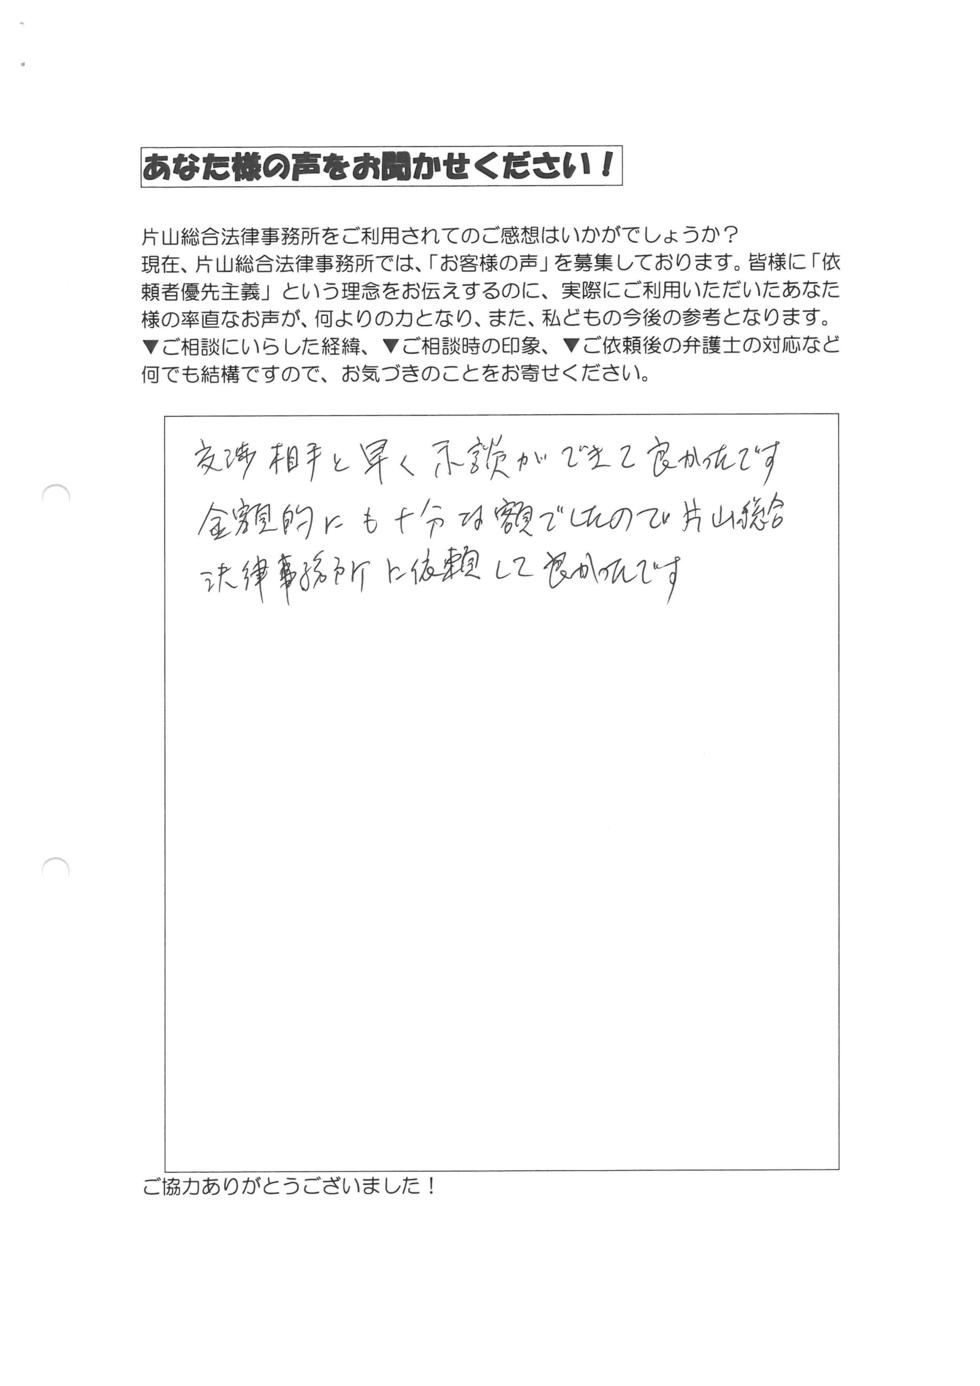 あなた様の声をお聞かせください！
片山総合法律事務所をご利用されてのご感想はいかがでしょうか？
現在、片山総合法律事務所では、「お客様の声」を募集しております。皆様に「依
頼者優先主義」という理念をお伝えするのに、実際にご利用いただいたあなた
様の率直なお声が、何よりの力となり、また、私どもの今後の参考となります。
▼ご相談にいらした経緯、▼ご相談時の印象、▼ご依頼後の弁護士の対応など
何でも結構ですので、お気づきのことをお寄せください。
交渉相手と早く示談ができて良かったです
金額的にも十分な額でしたので片山総合
法律事務所に依頼して良かったです
ご協力ありがとうございました！